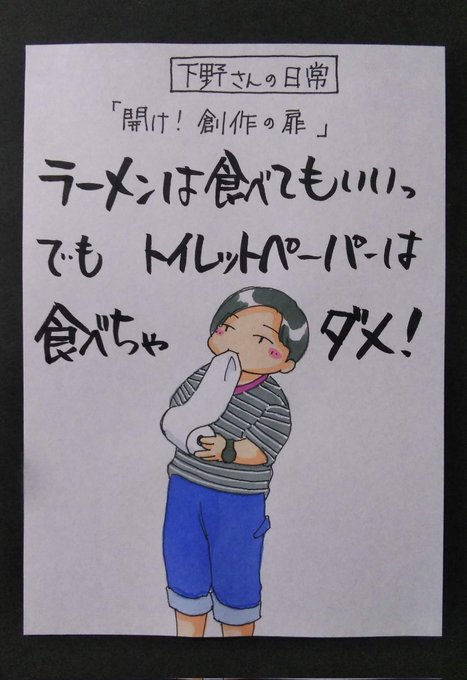 下野さんの日常
「開け！創作の扉」
ラーメンは食べてもいいっ
でも トイレットペーパーは
食べちゃ ダメ！